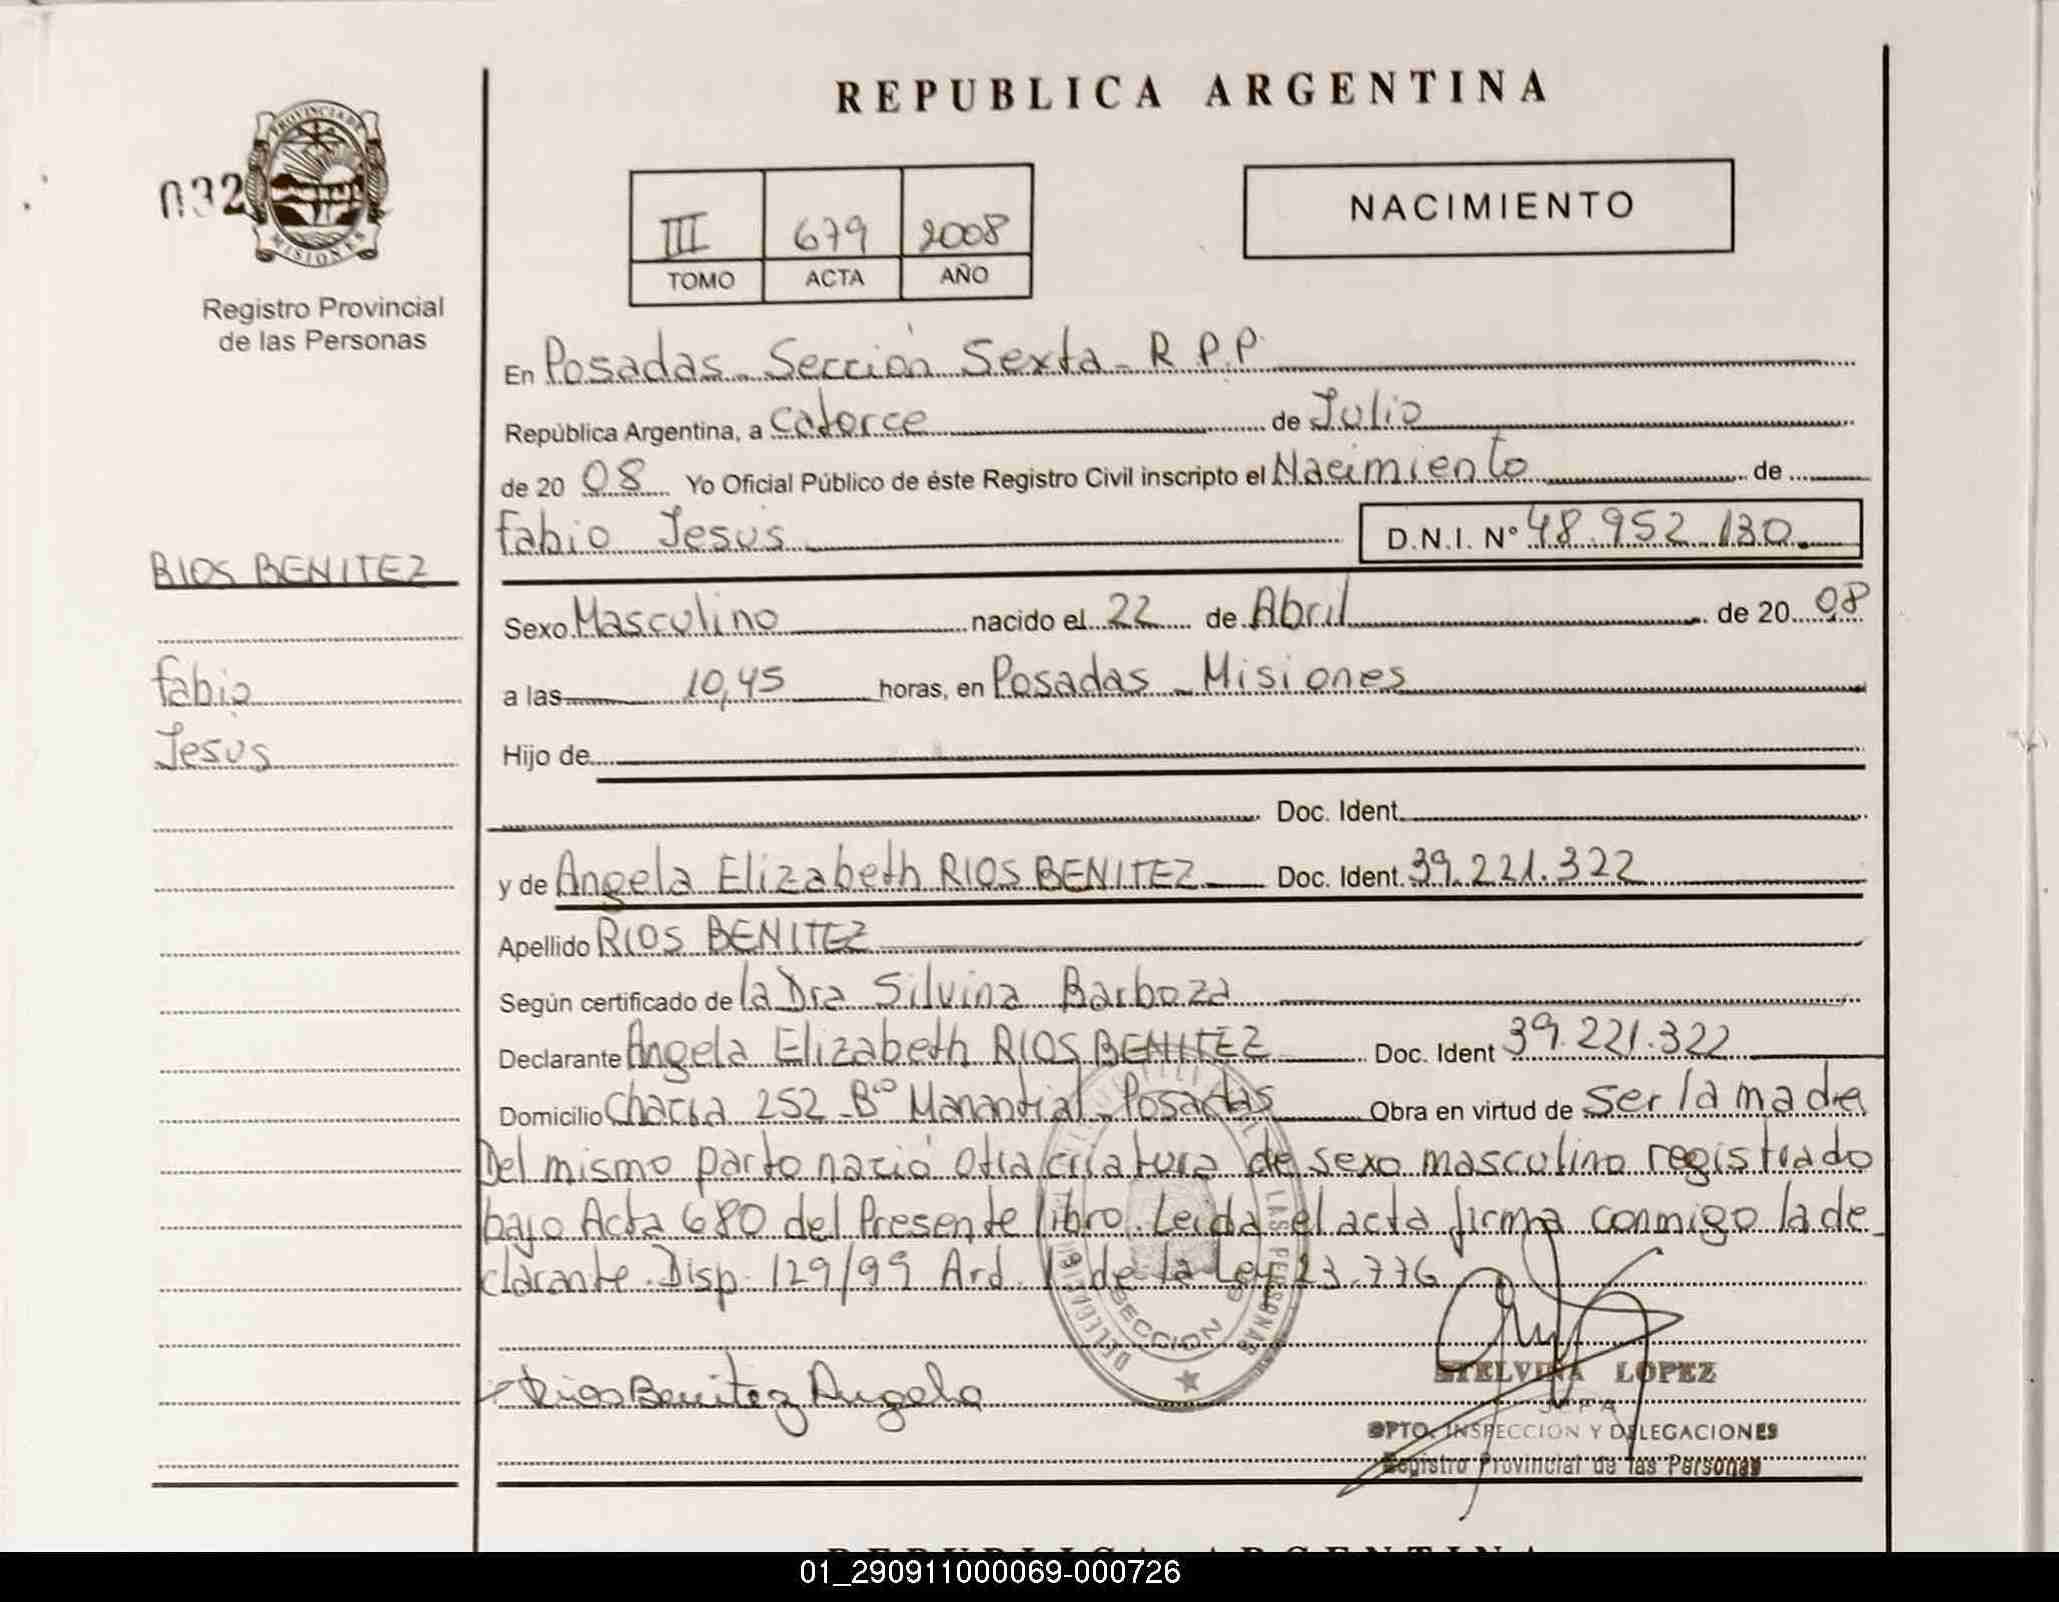 REPUBLICA ARGENTINA
032
PROVINCIA DE MISIONES
Registro Provincial
de las Personas
III 679 2008
TOMO ACTA AÑO
NACIMIENTO
En Posadas - Sección Sexta - R.P.P.
República Argentina, a catorce de Julio
de 20 08 Yo Oficial Público de éste Registro Civil inscripto el Nacimiento de
Fabio Jesus D.N.I. N° 48.952.130.
RIOS BENITEZ
Fabio
Jesus
Sexo Masculino nacido el 22 de Abril de 20 08
a las 10,45 horas, en Posadas - Misiones
Hijo de
Doc. Ident.
y de Angela Elizabeth RIOS BENITEZ Doc. Ident. 39.221.322
Apellido RIOS BENITEZ
Según certificado de la Dra Silvina Barboza
Declarante Angela Elizabeth RIOS BENITEZ Doc. Ident 39.221.322
Domicilio Chacra 252 - B° Manantial - Posadas Obra en virtud de ser la madre
Del mismo parto nació otra criatura de sexo masculino registrado
bajo Acta 680 del Presente libro. Leida el acta firma conmigo la de_
clarante. Disp. 129/99 Art. 1 de la Ley 23.776
LAS PERSONAS
DELEGACION
SECCION 6
Rios Benitez Angela
STELVINA LOPEZ
JEFA
DPTO. INSPECCION Y DELEGACIONES
Registro Provincial de las Personas
REPUBLICA ARGENTINA
01_290911000069-000726